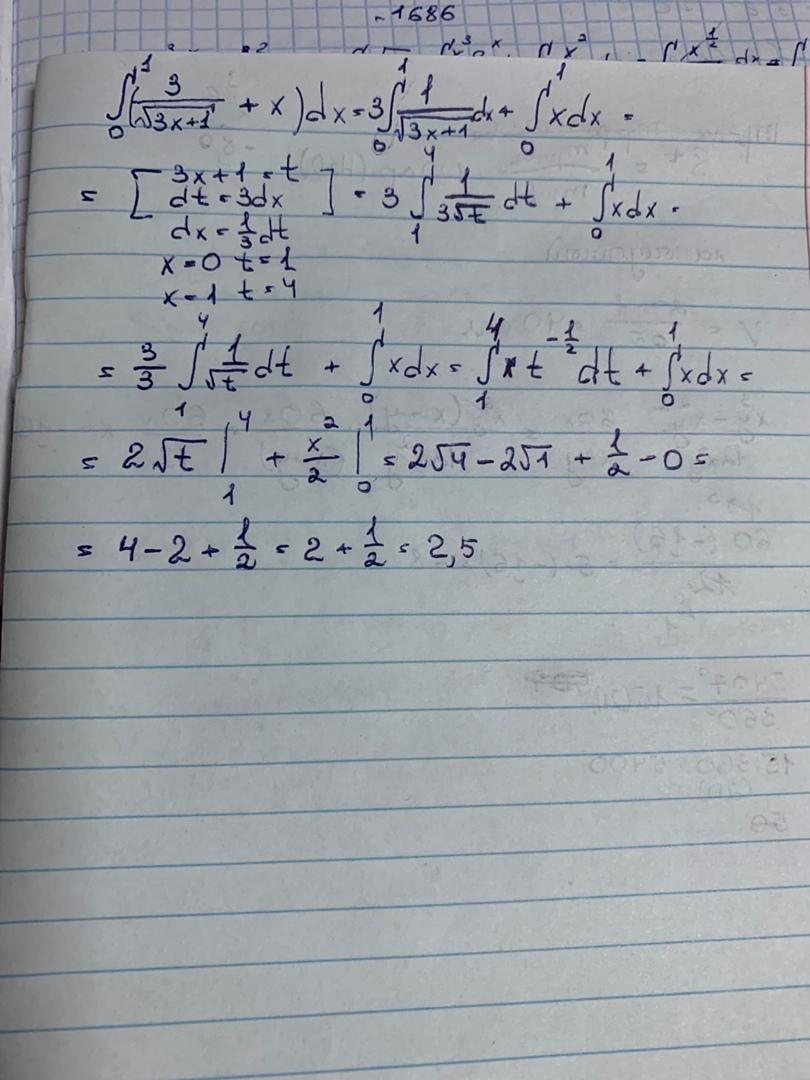 -1686
∫₀¹(3/√(3x+1) + x)dx = 3∫₀¹ 1/√(3x+1) dx + ∫₀¹ xdx =
= [3x+1 = t
dt = 3dx] = 3 ∫₁⁴ 1/(3√t) dt + ∫₀¹ xdx =
dx = 1/3 dt
x=0 t=1
x=1 t=4
= 3/3 ∫₁⁴ 1/√t dt + ∫₀¹ xdx = ∫₁⁴ t^(-1/2) dt + ∫₀¹ xdx =
= 2√t |₁⁴ + x²/2 |₀¹ = 2√4 - 2√1 + 1/2 - 0 =
= 4 - 2 + 1/2 = 2 + 1/2 = 2,5